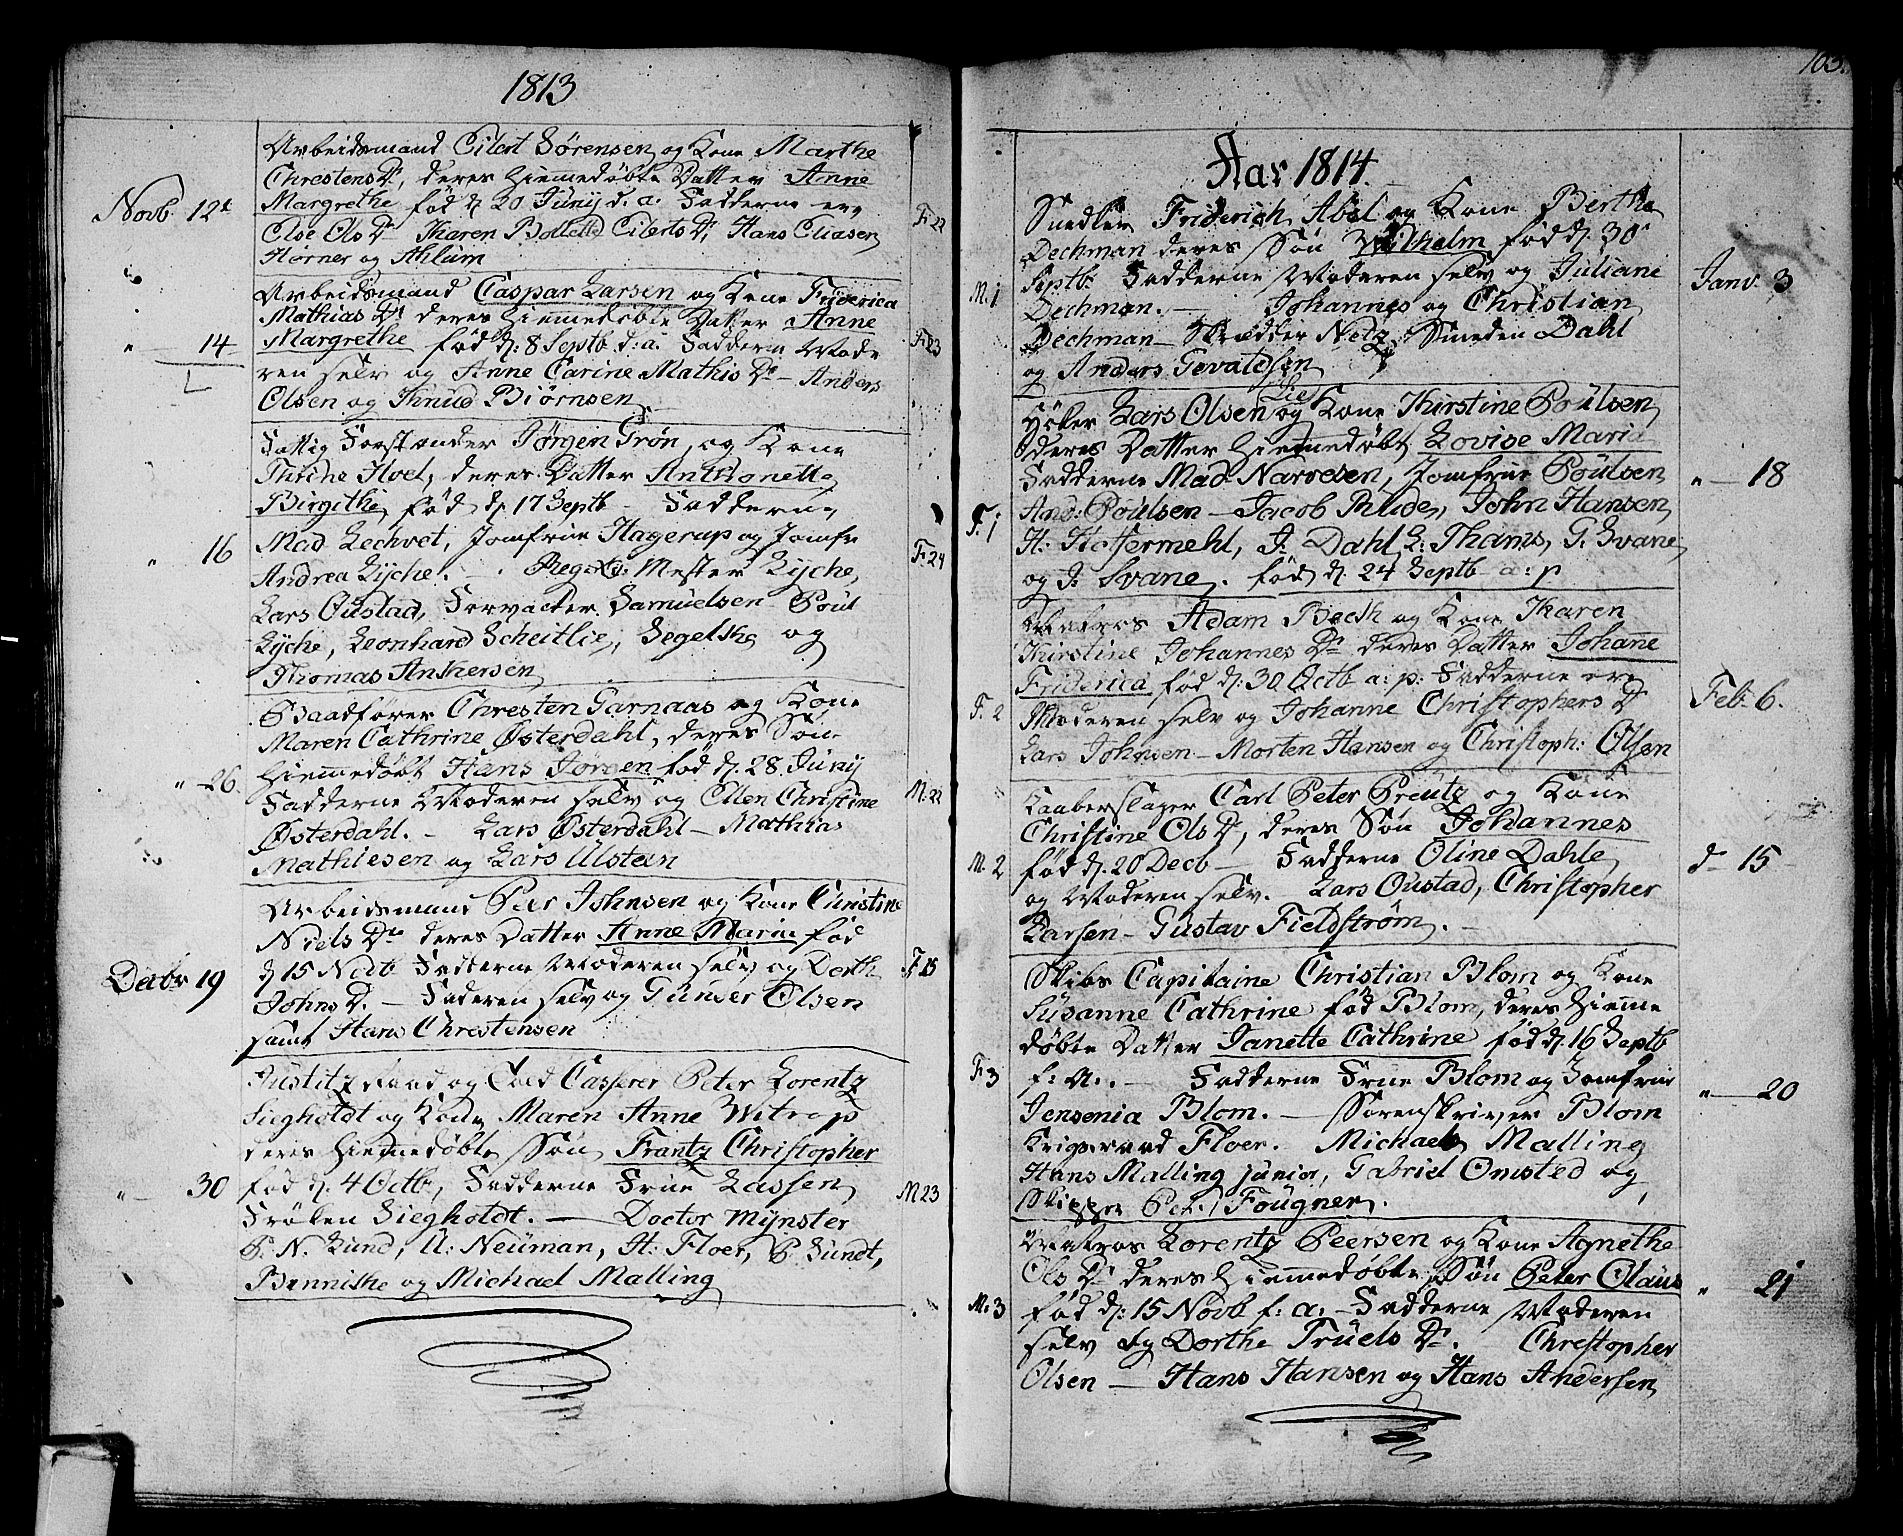 1813
Arbeidsmand Eilert Sørensen og Kone Marthe
Chrestens Dr, deres hiemedøbte Datter Anne
Novb 12t
Margrethe født d 20 Junÿ d. a. Fadderne ere
F. 22
Else Ols Dr Karen Bollette Eilerts Dr, Hans Eliasen
Hörner og Ahlum
Arbeidsmand Caspar Larsen og Kone Friderica
Mathias Dr deres hiemmedøbte Datter Anne
" 14
Margrethe født d: 8 Septb d: a. Fadderne Mode
F. 23
ren selv og Anne Carine Mathis Dr - Anders
Olsen og Knud Biørnsen
Fattig Forstander Jørgen Grøn og Kone
Thrine Hoel, deres Datter Anthonette
Birgithe, født d, 17 Septb - Fadderne
Mad Lechvet, Jomfrue Hagerup og Jomfr
" 16
F. 24
Andrea Lÿche. - Regets: Mester Lÿche,
Lars Oustad, Forvalter Samuelsen - Poul
Lÿche, Leonhard Scheitlie, Segelske og
Thomas Ankersen
Baadfører Chresten Garnaas og Kone
Maren Cathrine Østerdahl, deres Søn
hiemmedøbt Hans Jørgen født d. 28 Junÿ
" 26.
Fadderne Moderen selv og Ellen Christine
M. 22
Østerdahl. - Lars Østerdahl - Mathias
Mathiesen og Lars Ulsten
Arbeidsmand Peer Johnsen og Kone Christine
Niels Dr deres Datter Anne Marie født
Decbr 19
d 15 Novb Fadderne Moderen selv og Dorth
F. 25
Johns Dr. - Faderen selv og Gunder Olsen
samt Hans Chrestensen
Justitz Raad og Told Casserer Peter Lorentz
Siegholdt og Kone Maren Anne Witrop
deres hiemmedøbte Søn Frantz Christopher
" 30
født d. 4 Octb, Fadderne Frue Lassen
M 23
Frøken Siegholdt. - Doctor Mÿnster
P. N. Lund, A: Neuman, H: Floer, P. Lundt,
Benniske og Michael Malling
103.
Aar 1814
Snedker Friderich Abel og Kone Berthe
Dechman deres Søn Wilhelm født d. 30
M. 1
Septb: Fadderne Moderen selv og Juliani
Janv. 3
Dechman. - Johannes og Christian
Dechman - Skrædder Netz, Smeden Dahl
og Anders Gevaldsen
Lie
Høker Lars Olsen og Kone Kirstine Poulsen
deres Datter hiemmedøbt Lovise Maria
Fadderne Mad Narvesen, Jomfrue Poulsen
" 18
F. 1
And: Poulsen - Jacob Rude, John Hansen
H: Hoffermehl, J. Dahl L: Thams, G. Svane
og J. Svane, født d. 24 Septb a: p
Matros Adam Beck og Kone Karen
Kirstine Johannes Dr deres Datter Johane
Friderica født d: 30 Octb a: p: Fadderne ere
F. 2
Moderen selv og Johanne Christophers Dr
Feb. 6.
Lars Johnsen - Morten Hansen og Christoph: Olsen
Kaaberslager Carl Peter Preutz og Kone
Christine Ols Dr, deres Søn Johannes
M. 2
født d. 20 Decb - Fadderne Oline Dahle
d- 15
og Moderen selv. Lars Oustad, Christopher
Larsen - Gustav Fieldstrøm. -
Skibs Capitaine Christian Blom og Kone
Susanne Cathrine født Blom, deres hiemme
døbte Datter Janette Cathrine født d. 16 Septb
F. 3
f: a.. - Fadderne Frue Blom og Jomfrue
" 20
Jensenia Blom. - Sorenskriver Blom
Krigsraad Floer. Michael Malling
Hans Malling junior, Gabriel Omsted og
Skipper Ped. Fougner.
Matros Lorentz Peersen og Kone Agnethe
Ols Dr deres hiemmedøbte Søn Peter Olaus
" 21
M. 3
født d: 15 Novb f: a. - Fadderne Moderen
selv og Dorthe Truels Dr. Christopher
Olsen - Hans Hansen og Hans Andersen